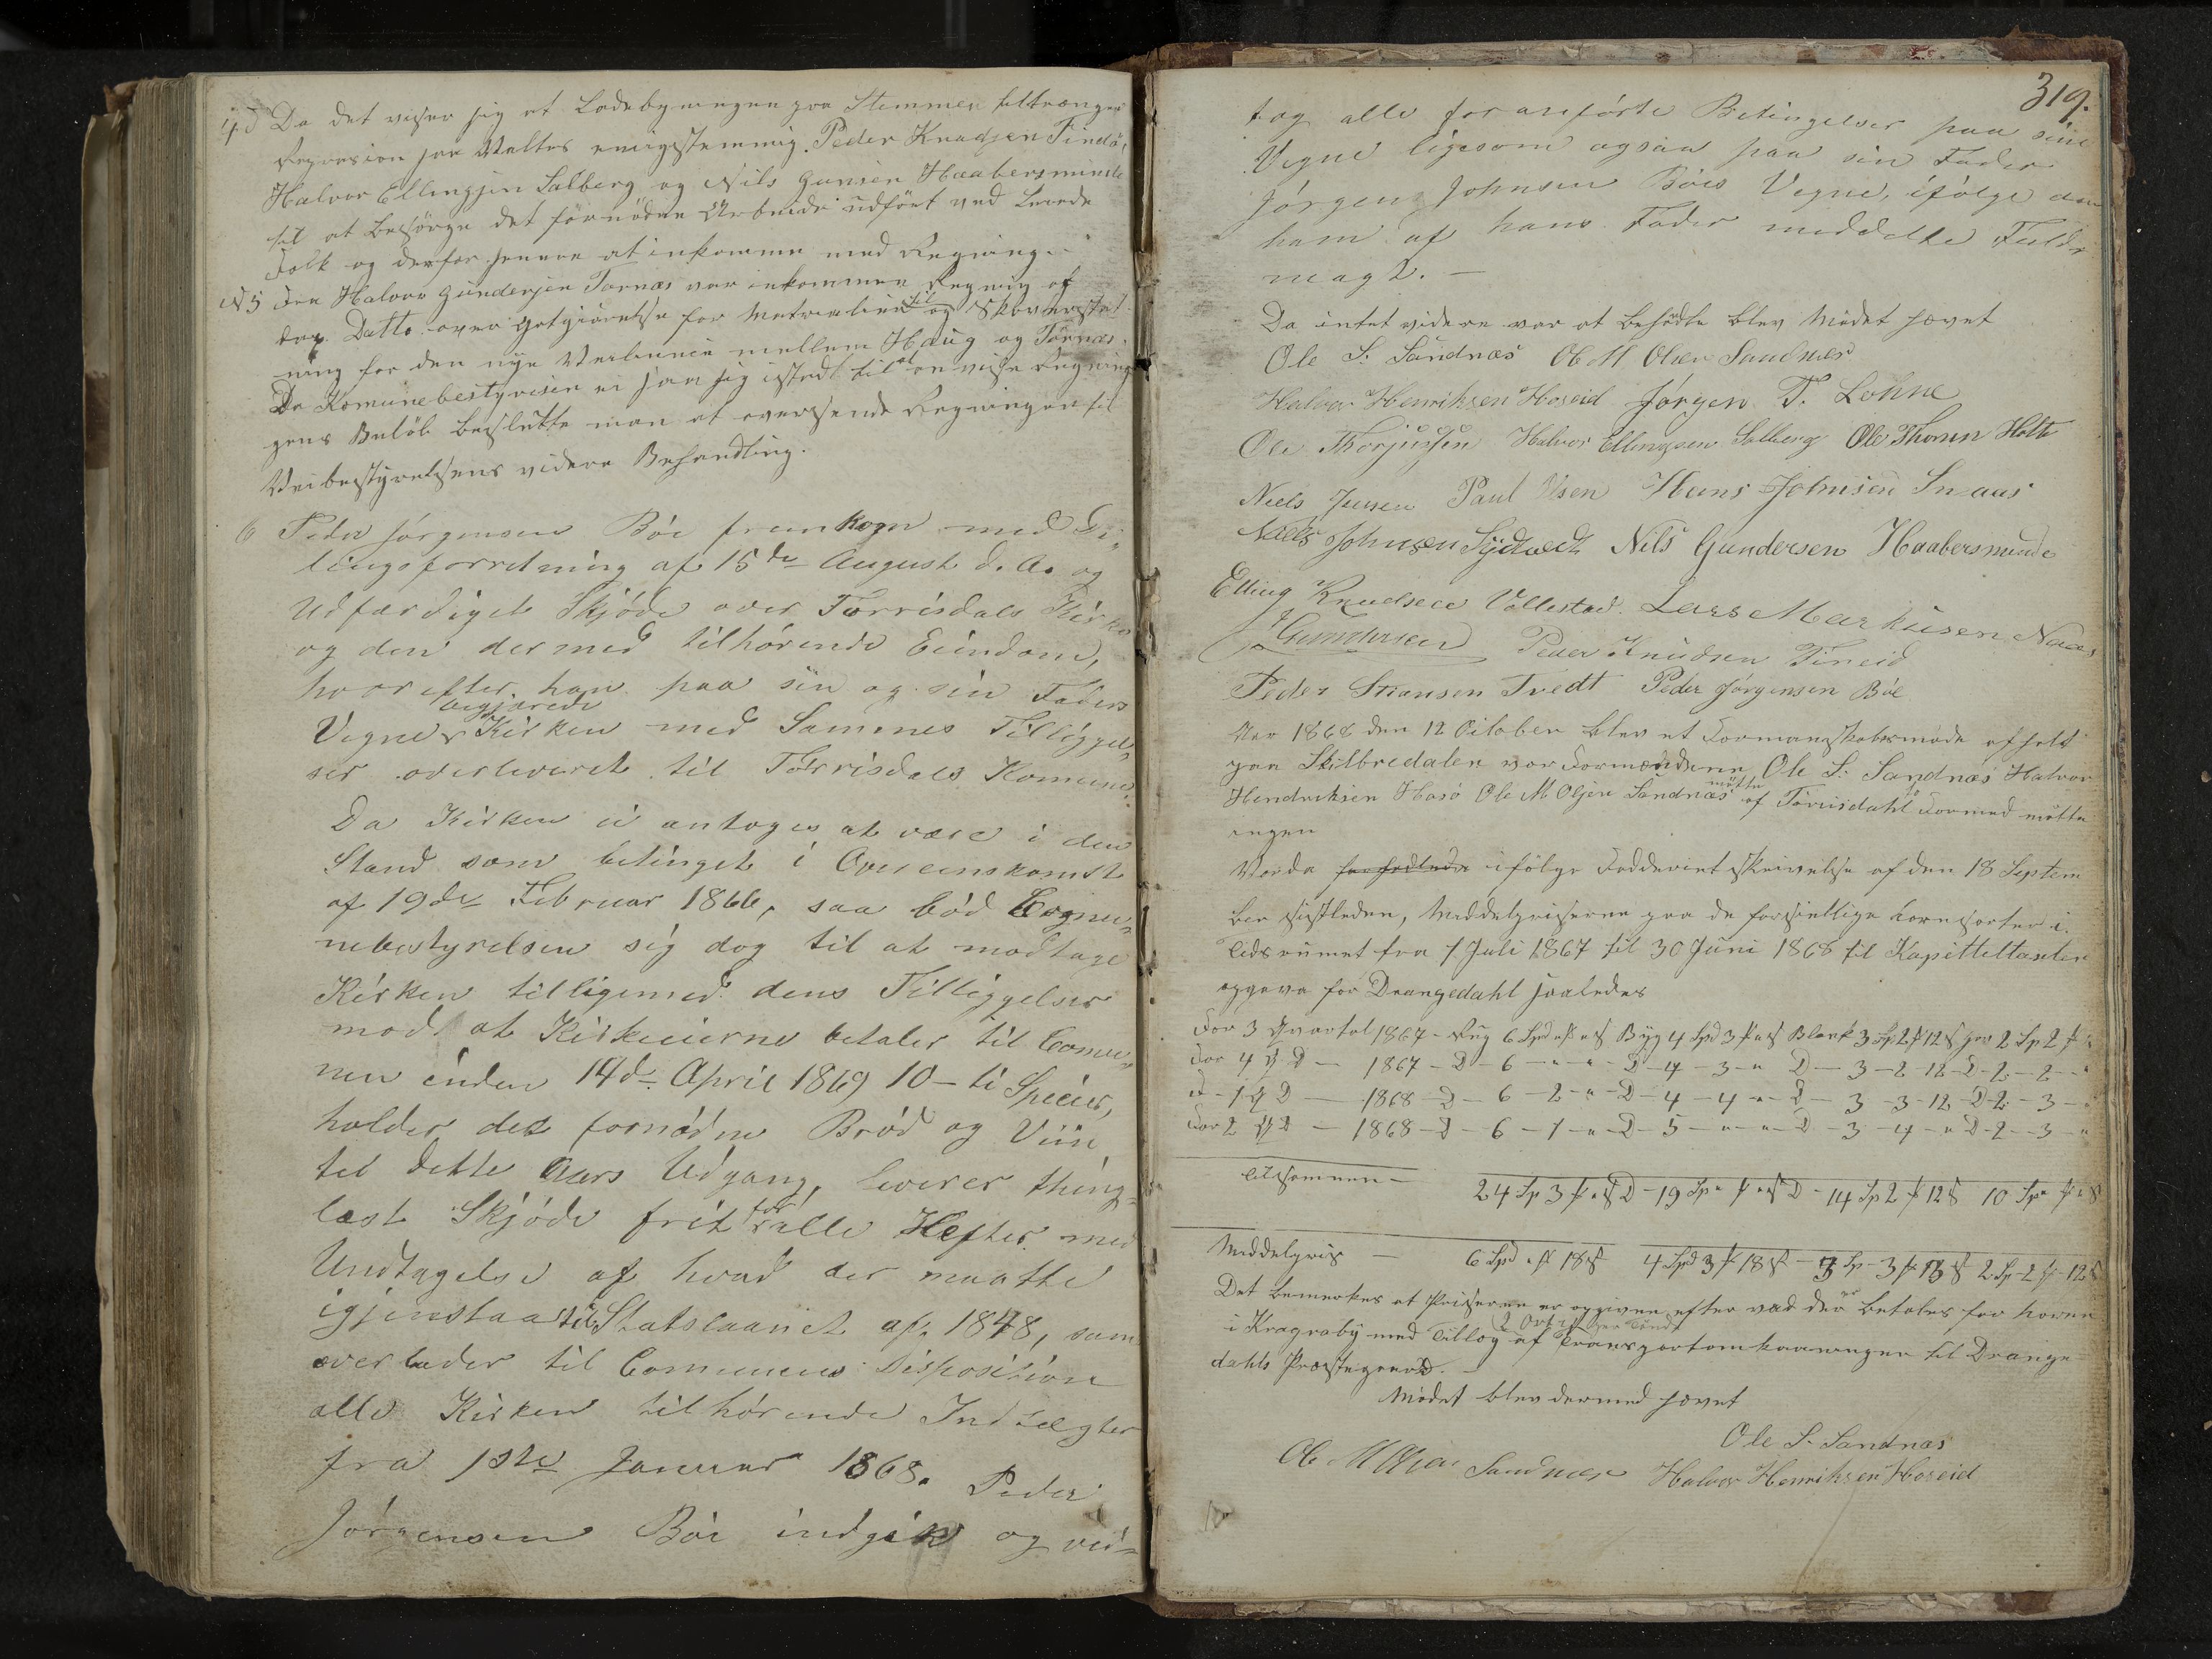 4d Da det viser sig at Ladebygningen paa Stemmen tiltrænger
Repration saa Valtes enigstemmig Peder Knudsen Tineid,
Halvor Ellingsen Salberg og Nils Gunsen Haabersminde
til at besörge det förnödne Arbeide udfört ved Leiede
Folk og derfor senere at inkomme med Regning.
N5 Fra Halvor Gundersen Tornæs var inkommen Regnig af
Datto over Gotgiörelse for Matrialier til og Skoverstat
ning for den nye Veilinnie mellem Haug og Tornæs.
Da Komunebestyresen ei saa sig istand til at anvisse Regnin
gens Belöb besluttte man at oversende Regningen til
Veibestyrelsens videre Behandling.
6 Peder Jörgensen Böe fremkom med De-
lingsforretning af 15de August d. A. og
Udfærdiget Skjöde over Tørrisdals Kirke
og den dermed tilhörende Eiendom,
hvorefter han paa sin og sin Faders
Vegne begjærede Kirken med Sammes Tilliggel-
ser overleveret til Tørrisdals Komune.
Da Kirken ei antoges at være i den
Stand som betinget i Overeenskomst
af 19de Februar 1866, saa bød Comu-
nebestyrelsen sig dog til at modtage
Kirken tilligemed dens Tilliggelser
mod at Kirkeeierne betaler til Comu-
nen inden 14de April 1869 10 - ti Species,
holder det fornødne Brød og Viin
til dette Aars Udgang, leverer thing-
læst Skjöde frit for alle Hefter med
Undtagelse af hvad der maatte
igjenstaa til Statslaanet af 1848, samt
overlader til Comunens Disposition
alle Kirken tilhörende Indtægter
fra 1ste Januar 1868. Peder
Jörgensen Böe indgik og ved-
319.
tog alle foranförte Betingelser paa sine
Vegne ligesom ogsaa paa sin Fader
Jörgen Johnsen Böes Vegne, ifölge den
ham af hans Fader meddelte Fuld-
magt. —
Da intet videre var at behandle blev Mödet hævet
Ole S. Sandnæs Ole M Olsen Sandnæs
Halvor Henriksen Hoseid Jörgen T. Lohne
Ole Thorjussen Halvor Ellingsen Salberg Ole Thorsen Holte
Niels Jensen Paul Olsen Hans Johnsen Snaas
Niels Johnsen Nils Gundersen Haabersminde
Elling Knudsen Vollestad Lars Markusen Naas
J Gundersen Peder Knudsen Tineid
Peder Stiansen Tvedt Peder Jörgensen Böe
Aar 1868 den 12 October blev et Formanskabsmöde afholt
paa Skilbredalen vor Formændene Ole S. Sandnæs Halvor
Hendriksen Hosö Ole M Olsen Sandnæs mötte af Törrisdahls Formænd mötte
ingen
Vorda ifölge Fodderiet skrivelse af den 18 Septem
ber sistleden, Middelpriserne paa de forsiellige Kornsorter i
Tidsrumet fra 1 Juli 1867 til 30 Juni 1868 til Kapitteltaxten
opgives for Drangedahl saaledes
For 3 Qvartal 1867 - Rug 6 Spd " " Byg 4 Spd 3 " " Blank 3 Sp 2 12 hav 2 Sp 2
For 4 Q D — 1867 - D - 6 - " - " - D - 4 - 3 - " D - 3 - 2 12 - D - 2 - 2 - "
D - 1 Q D — 1868 - D - 6 - 2 - " - D - 4 - 4 - " - D - 3 - 3 - 12 - D - 2 - 3 -
For 2 Q D — 1868 - D - 6 - 1 - " - D - 5 - " - " - D - 3 - 4 - " D - 2 - 3 - "
Tilsammen — 24 Sp 3 " D - 19 Sp " " D - 14 Sp 2 12 10 Sp "
Middelpris — 6 Spd " 18 4 Spd 3 18 - 3 Sp - 3 2 Sp - 2 - 12
Det bemerkes at Priserne er opgiven efter vad der er betales for Kornet
i Kragröby med Tillæg af 2 Ort pr Tönde Transportomkaaninger til Drange
dahls Præstegaard. —
Mödet blev dermed hævet
Ole S. Sandnæs
Ole M Olsen Sandnæs Halvor Henriksen Hoseid